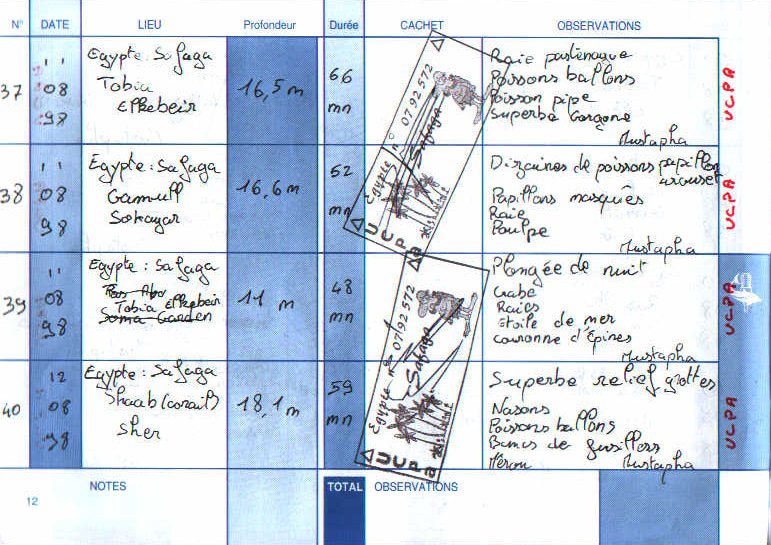 N° DATE LIEU Profondeur Durée CACHET OBSERVATIONS
37
11
08
98
Egypte : Safaga
Tobia
El Kebeir
16,5 m
66
mn
Raie pastenague
Poissons ballons
Poisson pipe
Superbe Gorgone
Mustapha
UCPA
38
11
08
98
Egypte : Safaga
Gamull
Sokayar
16,6 m
52
mn
Egypte n° 0792572
Safaga
UCPA
Dizaines de poissons papillon
Papillons masqués
Raie
Poulpe
Mustapha
UCPA
39
11
08
98
Egypte : Safaga
Ras Abu
Tobia El Kebeir
Soma Garden
11 m
48
mn
Plongée de nuit
Crabe
Raies
Etoile de mer
couronne d'Epines
Mustapha
UCPA
40
12
08
98
Egypte : Safaga
Shaab (corail)
Sher
18,1 m
59
mn
Egypte n° 0792572
Safaga
UCPA
Superbe relief, grottes
Nasons
Poissons ballons
Bancs de fusillers
Mustapha
UCPA
NOTES
TOTAL OBSERVATIONS
12